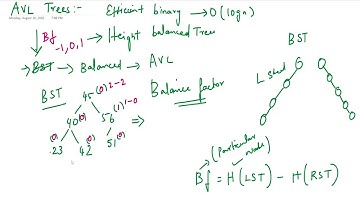 AVL Trees :- Efficient binary → O(logn)
Monday, August 24, 2020 7:08 PM
Bf -1,0,1 → Height balanced Tree
→ BST → Balanced → AVL
BST
BST
Balance factor
45 (0) 2-2
L skewed
40 (0) 56 (1) 1-0
⇒
(0) 23 42 (0) 51 (0)
(Particular node)
Bf = H(LST) - H(RST)